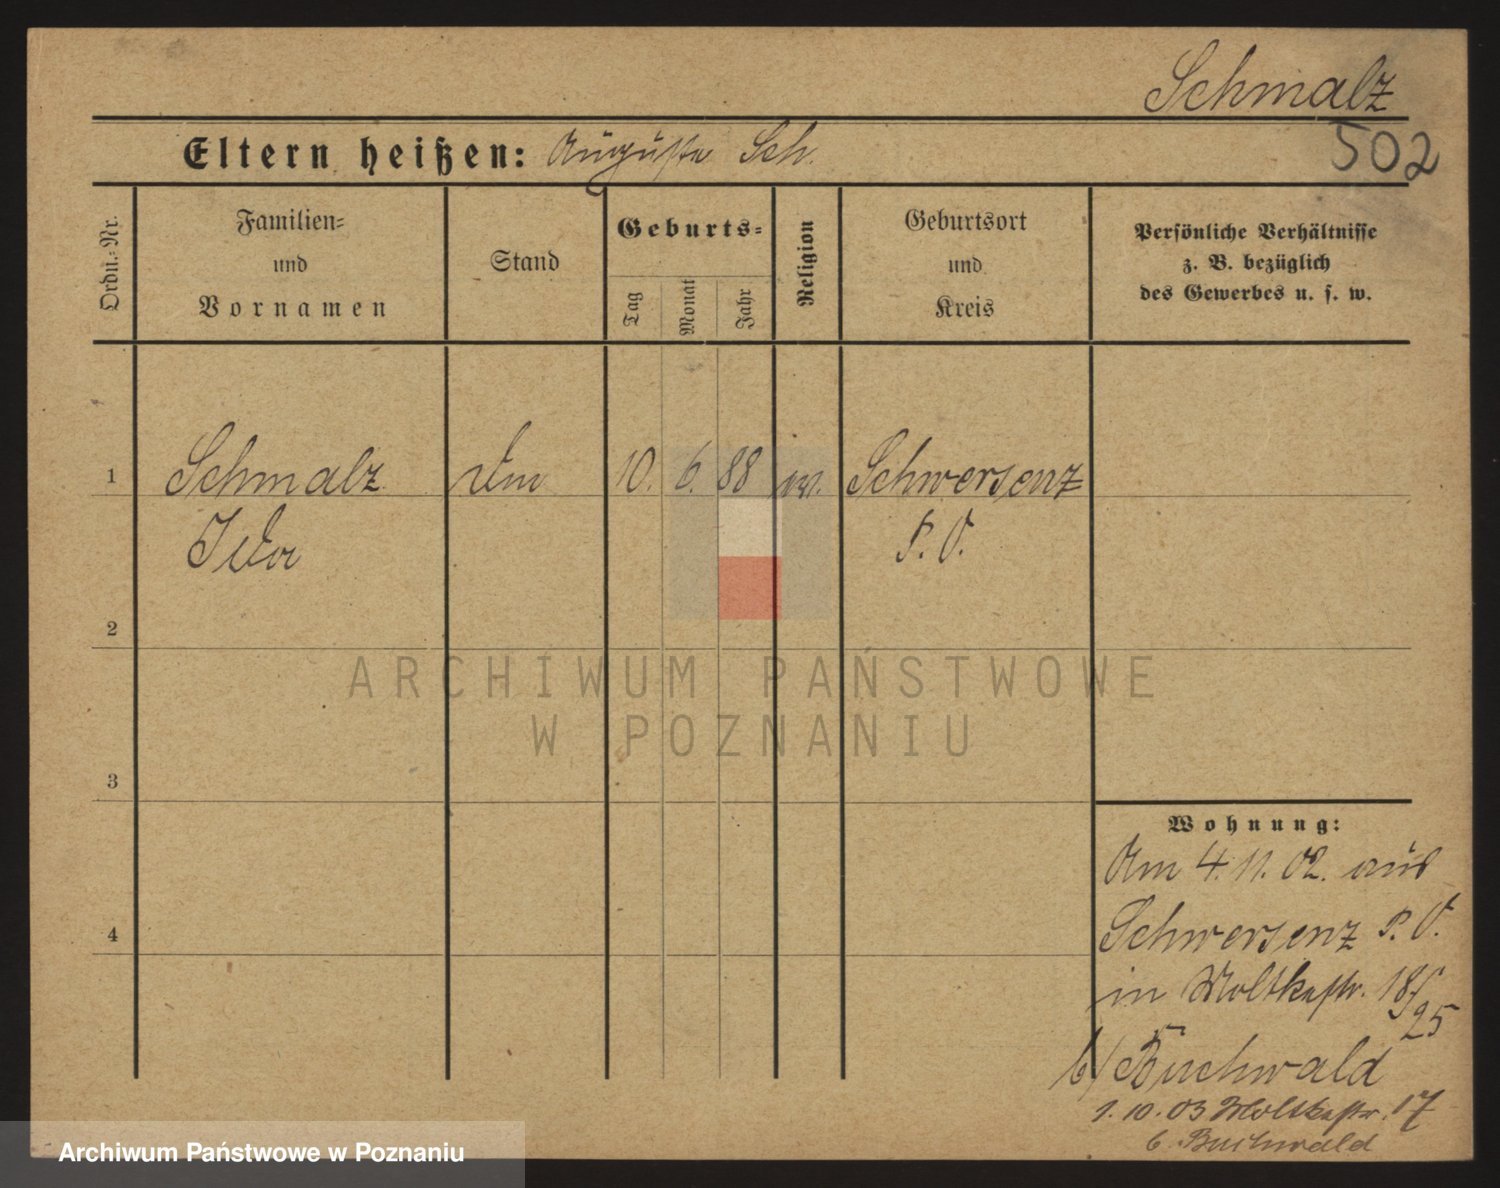 Schmalz
502
Eltern heißen: Auguste Sch.
Ordn.-Nr.
Familien- und Vornamen
Stand
Geburts-
Tag
Monat
Jahr
Religion
Geburtsort und Kreis
Persönliche Verhältnisse
z. B. bezüglich
des Gewerbes u. s. w.
1 Schmalz 10. 6. 88 Schwersenz
P. O.
2
ARCHIWUM PAŃSTWOWE
W POZNANIU
3
Wohnung:
Am 4.11.02. aus
4
Schwersenz P. O.
in Moltkestr. 18/
25
b/ Buchwald
1.10.03 Moltkestr. 17
b. Buchwald
Archiwum Państwowe w Poznaniu